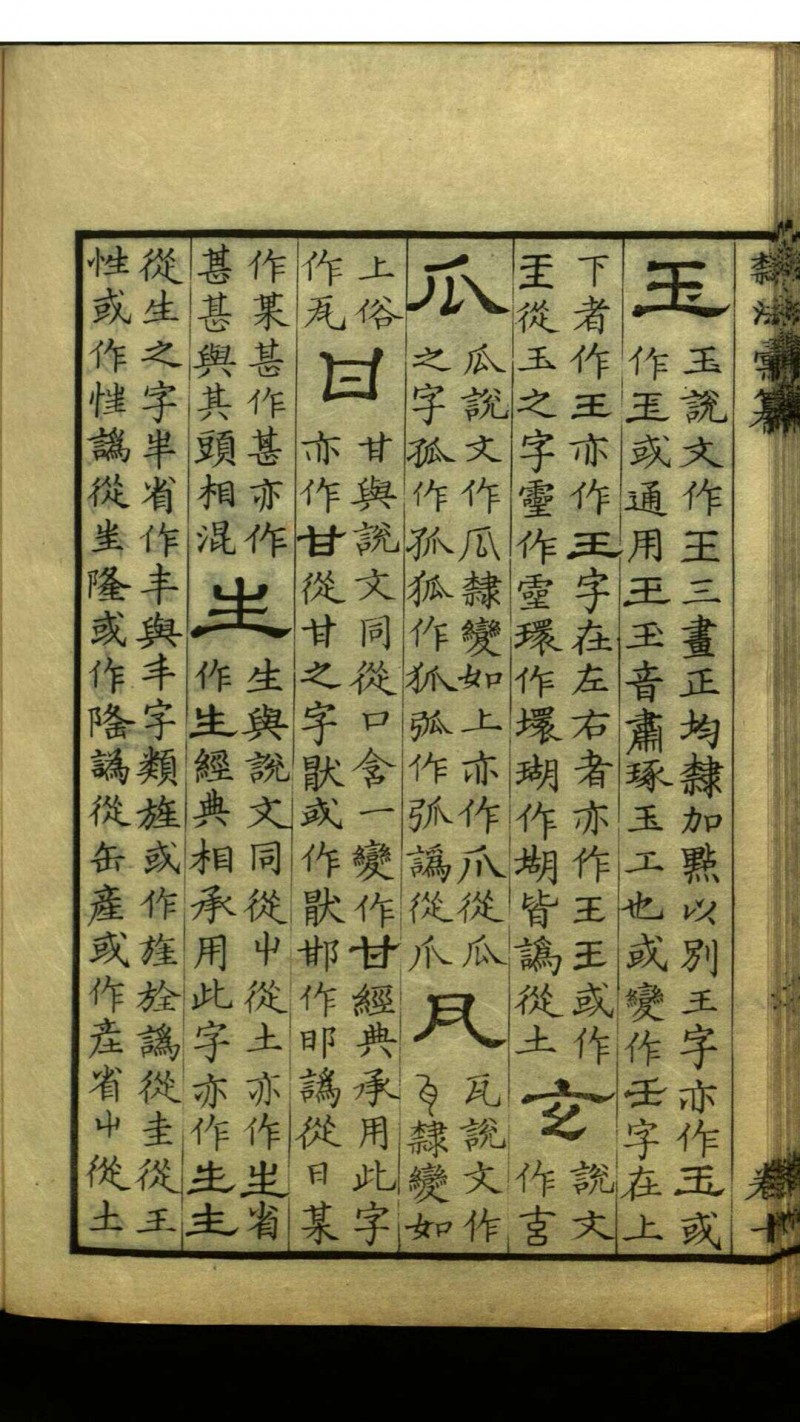 隸法彙纂 卷十
玉
玉說文作王三畫正均隸加點以別王字亦作玉或
作玊或通用玉玊音肅琢玉工也或變作壬字在上
下者作王亦作王字在左右者亦作王王或作
玊從玉之字靈作靈環作壞瑚作㙇皆譌從土
玄
說文
作玄
瓜
瓜說文作瓜隸變如上亦作爪從瓜
之字孤作孤狐作狐弧作弧譌從爪
瓦
瓦說文作
隸變如
上俗
作瓦
甘
甘與說文同從口含一變作甘經典承用此字
亦作甘從甘之字猒或作猒邯作邯譌從日某
作某甚作甚亦作
甚甚與其頭相混
生
生與說文同從屮從土亦作生省
作生經典相承用此字亦作生主
從生之字半省作丰與丰字類旌或作旌譌從圭從王
性或作性譌從坐隆或作隆譌從缶產或作産省屮從土